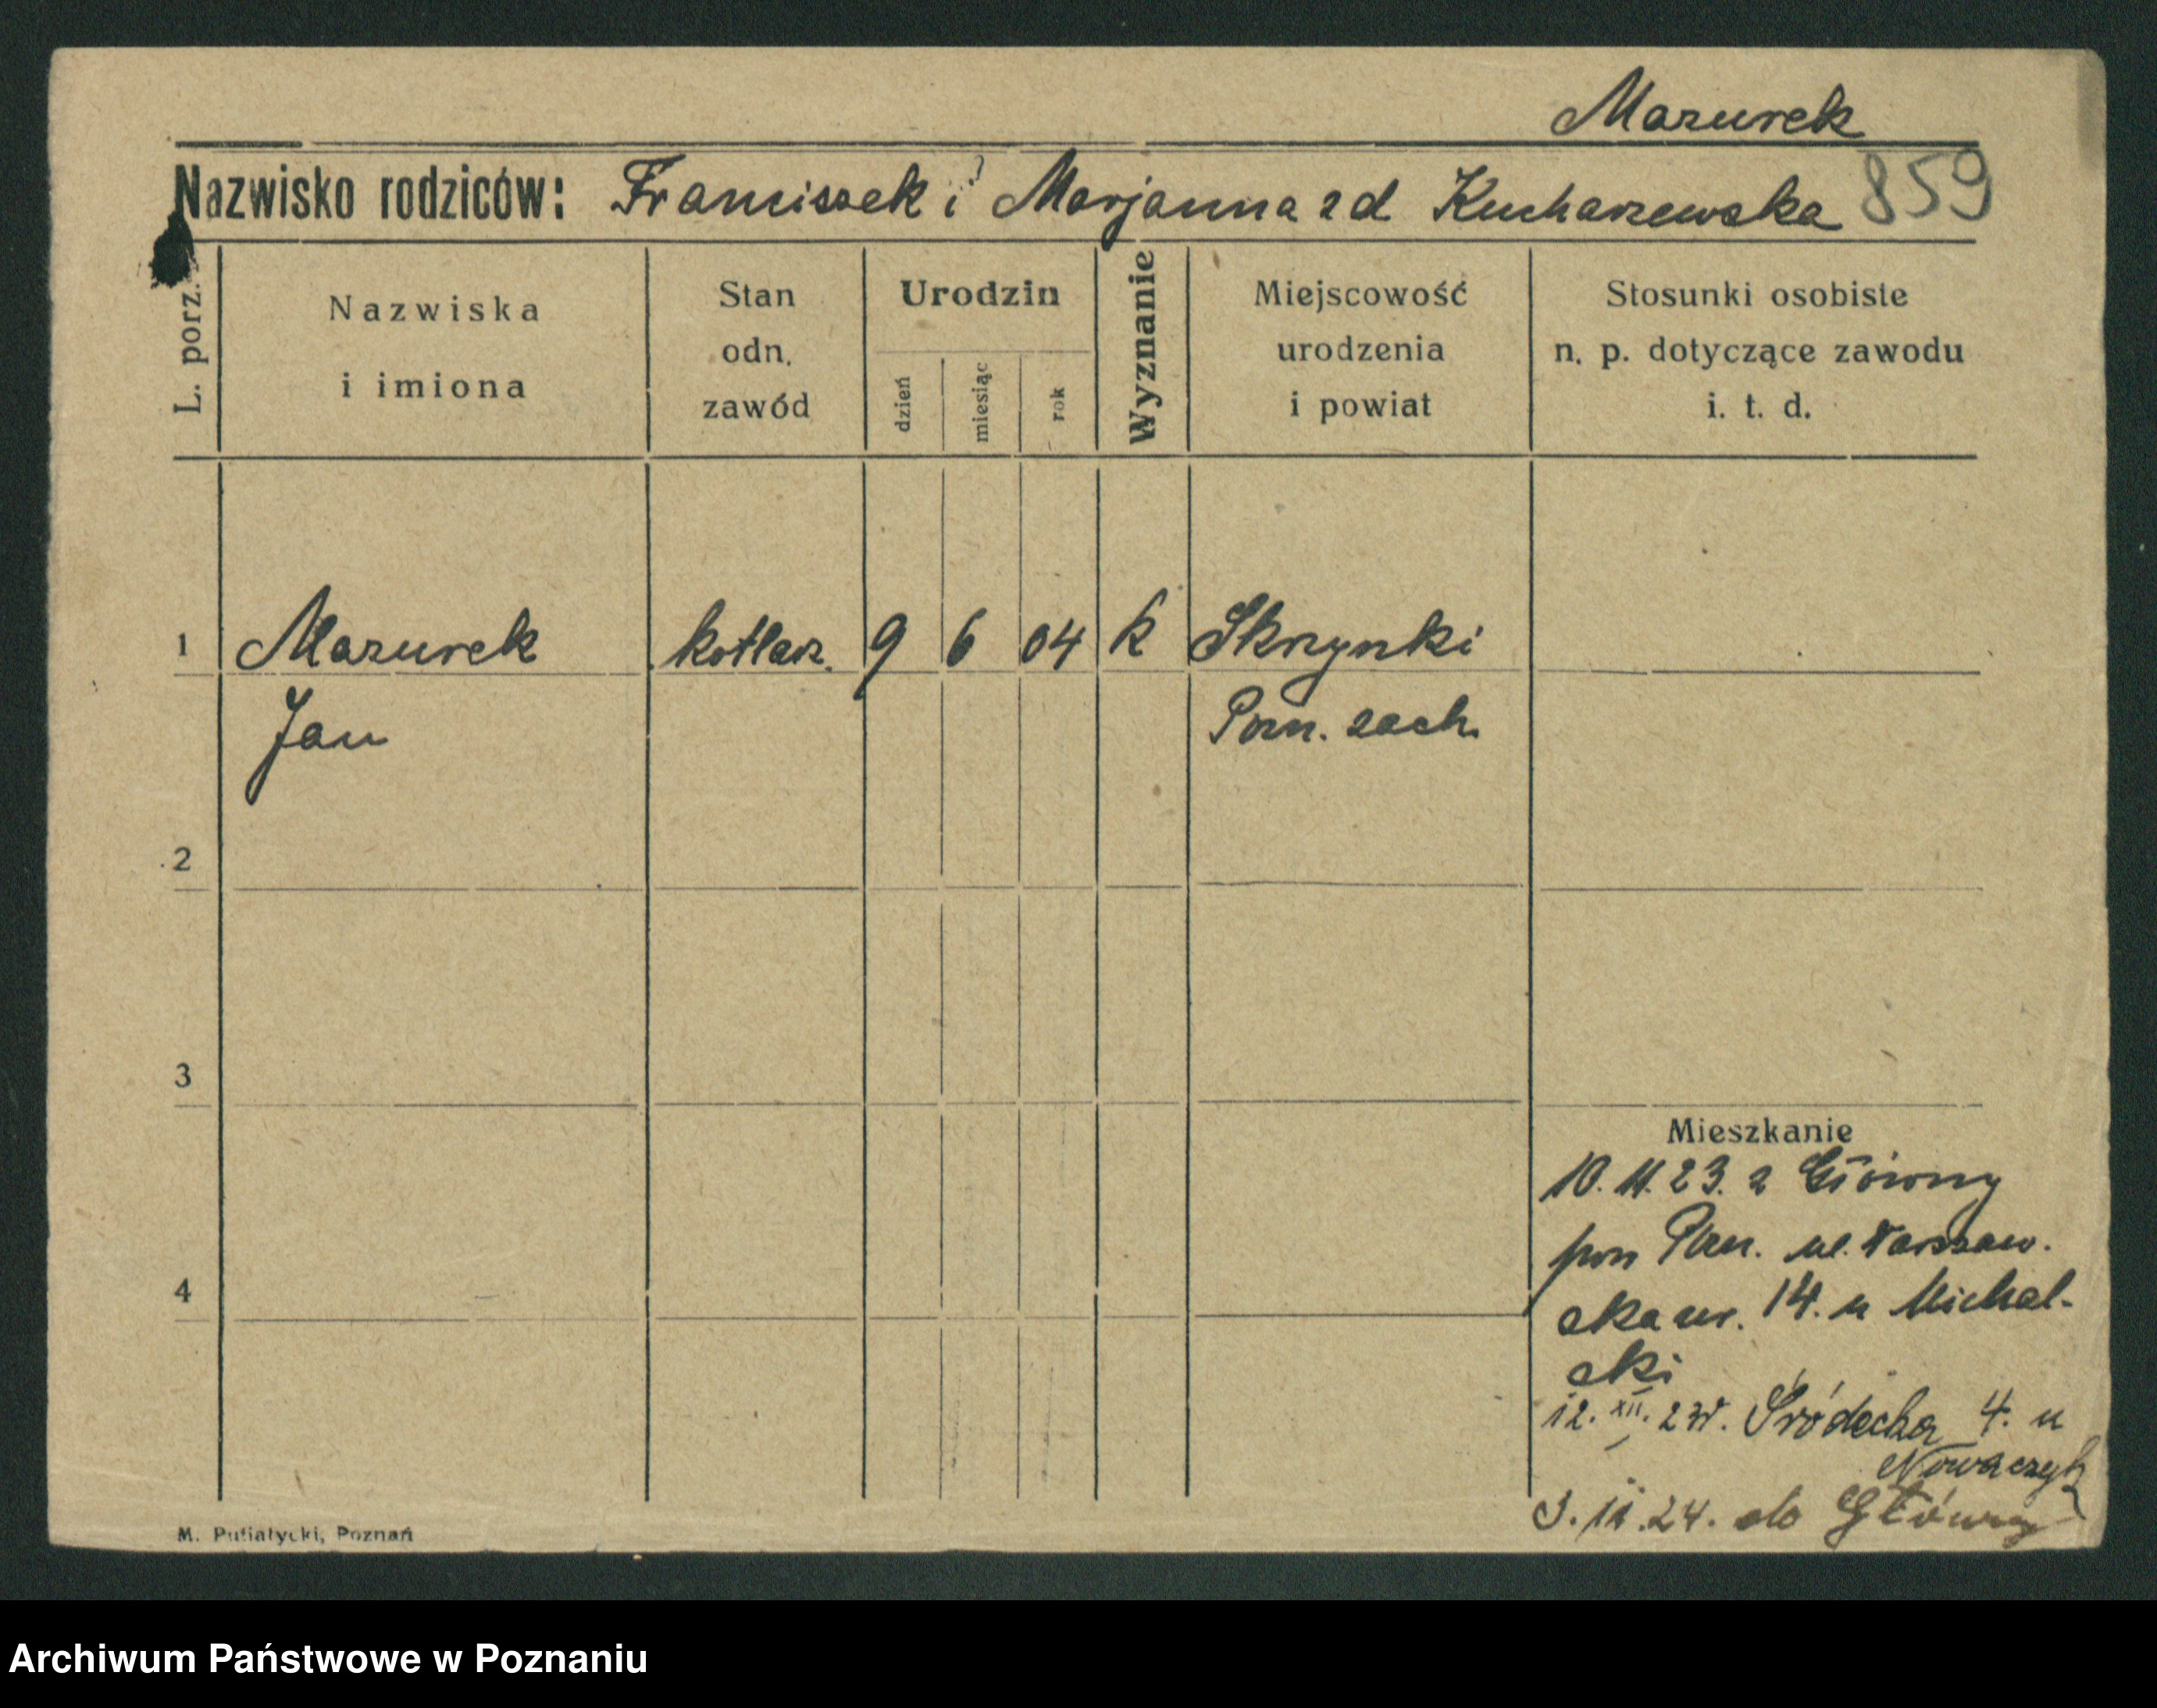 Mazurek
Nazwisko rodziców: Franciszek i Marjanna zd Kucharzewska 859
L. porz.
Nazwiska i imiona
Stan odn. zawód
Urodzin
dzień
miesiąc
rok
Wyznanie
Miejscowość urodzenia i powiat
Stosunki osobiste n. p. dotyczące zawodu i. t. d.
1 Mazurek kotlarz. 9 6 04 k Skrzynki
Jan Pozn. zach.
2
3
Mieszkanie
10. 11. 23. z Główny
pow Pozn. ul. Warszaw.
4
ska nr. 14. u Michal-
ski
12. XII. 23r. Śródecka 4. u
Nowaczyk
3. II. 24. do Główny
M. Putiatycki, Poznań
Archiwum Państwowe w Poznaniu